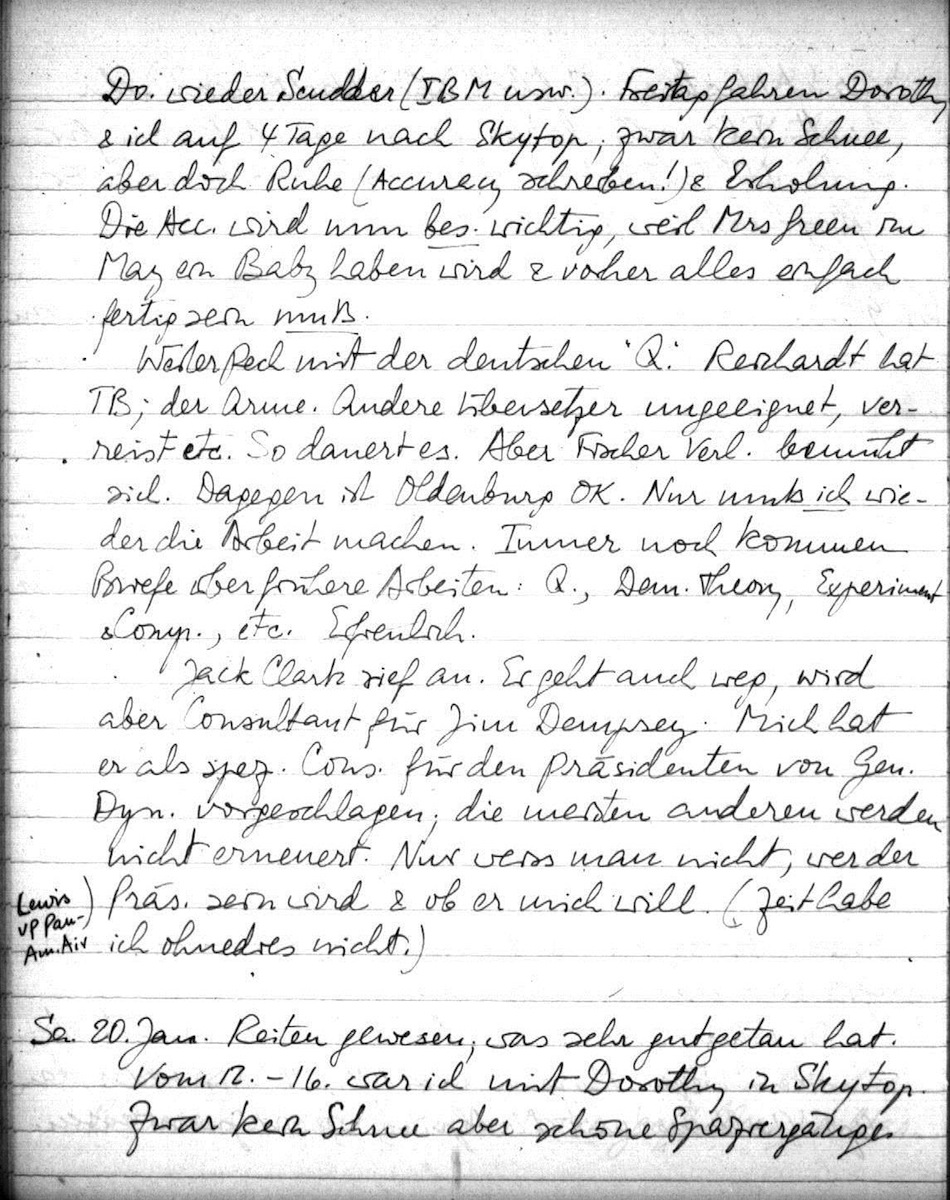 Do. wieder Scudder (IBM usw.). Freitag fahren Dorothy
& ich auf 4 Tage nach Skytop, zwar kein Schnee,
aber doch Ruhe (Accuracy schreiben!) & Erholung.
Die Acc. wird nun bes. wichtig, weil Mrs Green im
May ein Baby haben wird & vorher alles einfach
fertig sein muß.
Weiter Pech mit der deutschen "Q". Reichardt hat
TB; der Arme. Andere Übersetzer ungeeignet, ver-
reist etc. So dauert es. Aber Fischer Verl. bemüht
sich. Dagegen ist Oldenburg OK. Nur muß ich wie-
der die Arbeit machen. Immer noch kommen
Briefe über frühere Arbeiten: Q., Dem. Theory, Experiment
& Comp., etc. Erfreulich.
Jack Clark rief an. Er geht auch weg, wird
aber Consultant für Jim Dempsey. Mich hat
er als spez. Cons. für den Präsidenten von Gen.
Dyn. vorgeschlagen; die meisten anderen werden
nicht erneuert. Nur weiss man nicht, wer der
Präs. sein wird & ob er mich will. (Zeit habe
ich ohnedies nicht.)
Lewis
VP Pan-
Am. Air
Sa. 20. Jan. Reiten gewesen, was sehr gutgetan hat.
Vom 12. – 16. war ich mit Dorothy in Skytop.
Zwar kein Schnee aber schöne Spaziergänge